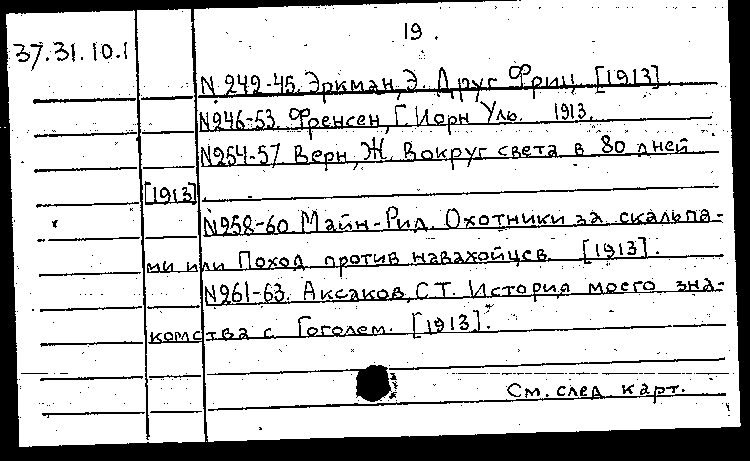 19.
37.31.10.1
N 242-45. Эркман, Э. Друг Фриц. [1913]
N246-53. Френсен, Г. Иорн Уль. 1913.
N254-57 Верн, Ж. Вокруг света в 80 дней
[1913]
N258-60 Майн-Рид. Охотники за скальпа-
ми или Поход против навахойцев. [1913].
N261-63. Аксаков, С.Т. История моего зна-
комства с Гоголем. [1913].
См. след. карт.